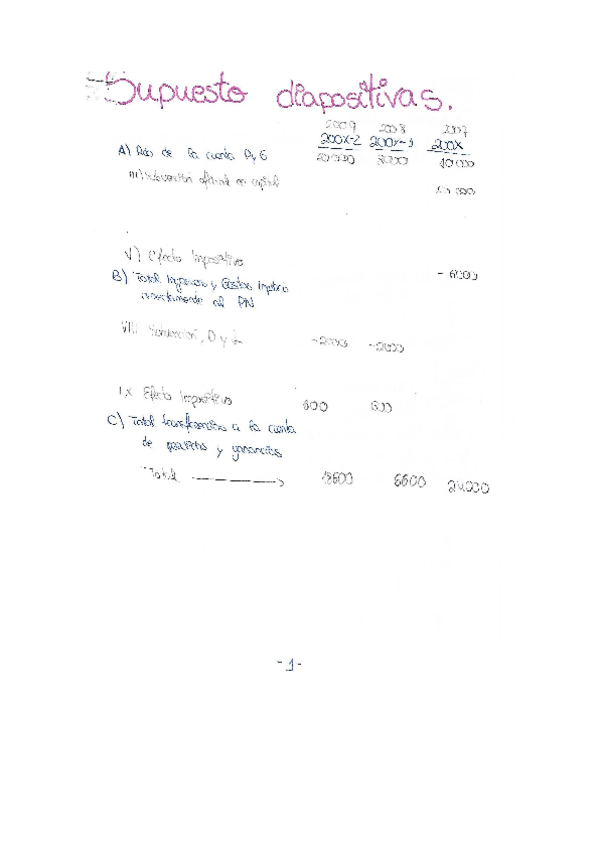 Supuesto diapositivas.
2009 2008 2007
200X-2 200X-1 200X
A) Rdo de la cuenta PyG 20000 8000 10000
III) Subvención oficial en capital
V) Efecto Impositivo - 6000
B) Total Ingresos y Gastos imptdo
directamente al PN
VIII Subvención, D y L -2000 -2000
IX Efecto Impositivo 600 600
C) Total transferencias a la cuenta
de pérdidas y ganancias
Total 18600 6600 24000
-1-